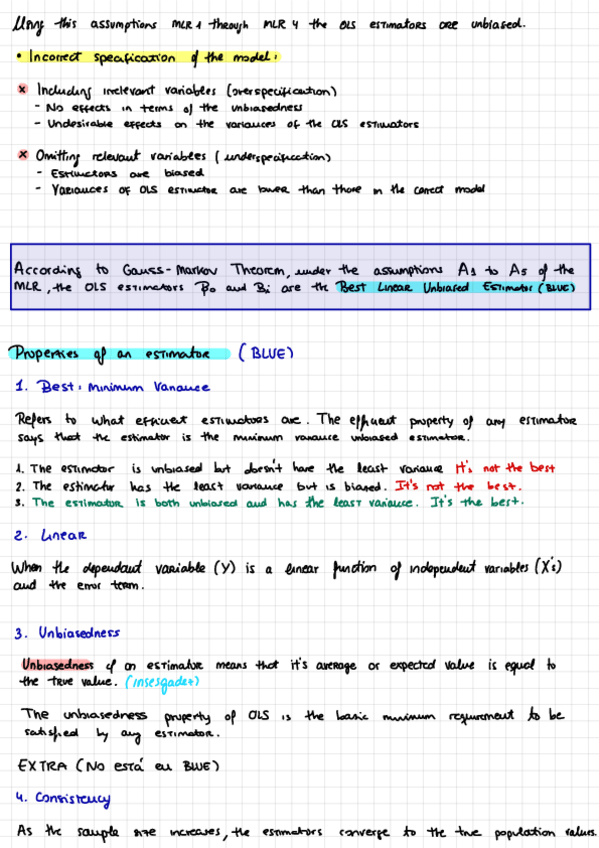 Using this assumptions MLR 1 through MLR 4 the OLS estimators are unbiased.
• Incorrect specification of the model:
x Including irrelevant variables (overspecification)
- No effects in terms of the unbiasedness
- Undesirable effects on the variances of the OLS estimators
x Omitting relevant variables (underspecification)
- Estimators are biased
- Variances of OLS estimator are lower than those in the correct model
According to Gauss-Markov Theorem, under the assumptions A1 to A5 of the
MLR, the OLS estimators β0 and βi are the Best Linear Unbiased Estimator (BLUE)
Properties of an estimator (BLUE)
1. Best: minimum variance
Refers to what efficient estimators are. The efficient property of any estimator
says that the estimator is the minimum variance unbiased estimator.
1. The estimator is unbiased but doesn't have the least variance It's not the best
2. The estimator has the least variance but is biased. It's not the best.
3. The estimator is both unbiased and has the least variance. It's the best.
2. Linear
When the dependant variable (Y) is a linear function of independent variables (X's)
and the error term.
3. Unbiasedness
Unbiasedness of an estimator means that it's average or expected value is equal to
the true value. (insesgadez)
The unbiasedness property of OLS is the basic minimum requirement to be
satisfied by any estimator.
EXTRA (No está en BLUE)
4. Consistency
As the sample size increases, the estimators converge to the true population values.